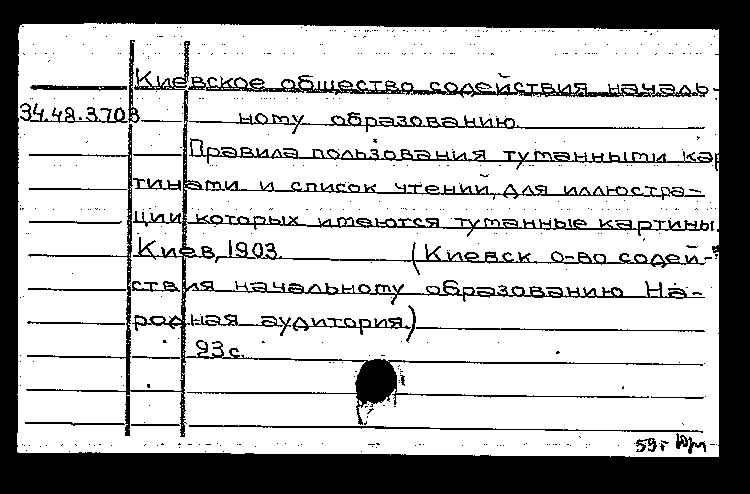 Киевское общество содействия началь-
34.48.3708 ному образованию
Правила пользования туманными кар
тинами и список чтений, для иллюстра-
ции которых имеются туманные картины.
Киев, 1903. (Киевск. о-во содей-
ствия начальному образованию На-
родная аудитория.)
93 с.
59 г